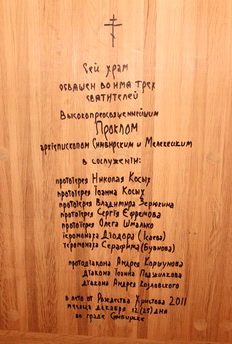 Сей храм
освящен во имя трех
святителей
Высокопреосвященнейшим
Проклом
архiепископом Симбирским и Мелекесским
в сослуженiи:
протоiерея Николая Косых
протоiерея Iоанна Косых
протоiерея Владимира
протоiерея Сергiя Ефремова
протоiерея Олега Шмалько
iеромонаха Дiодора (Исаева)
iеромонаха Серафима (Бубнова)
протодiакона Андрея Коршунова
дiакона Iоанна
дiакона Андрея Козловского
в лето от Рождества Христова 2011
месяца декабря 12 (25) дня
во граде